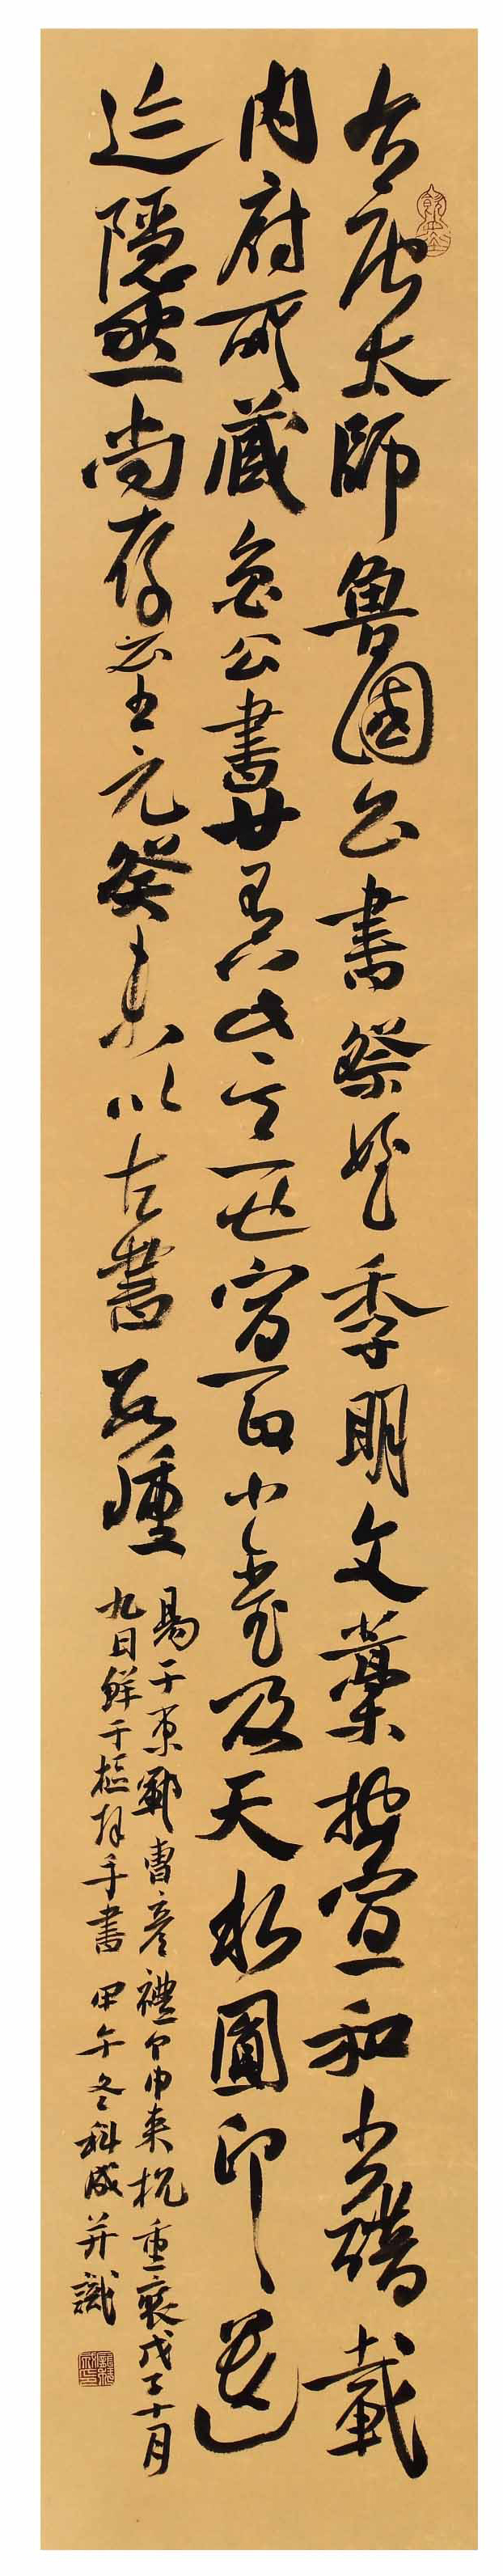 右唐太師魯國公書祭姪季明文藁按宣和書譜載
內府所藏魯公書廿有八此其一也小璽及天水圓印
迹隱然尚存至元癸未以古書數種
易于東鄆曹彥禮甲申來杭重裝戊子十月
九日鮮于樞拜手書 甲午冬科成并識